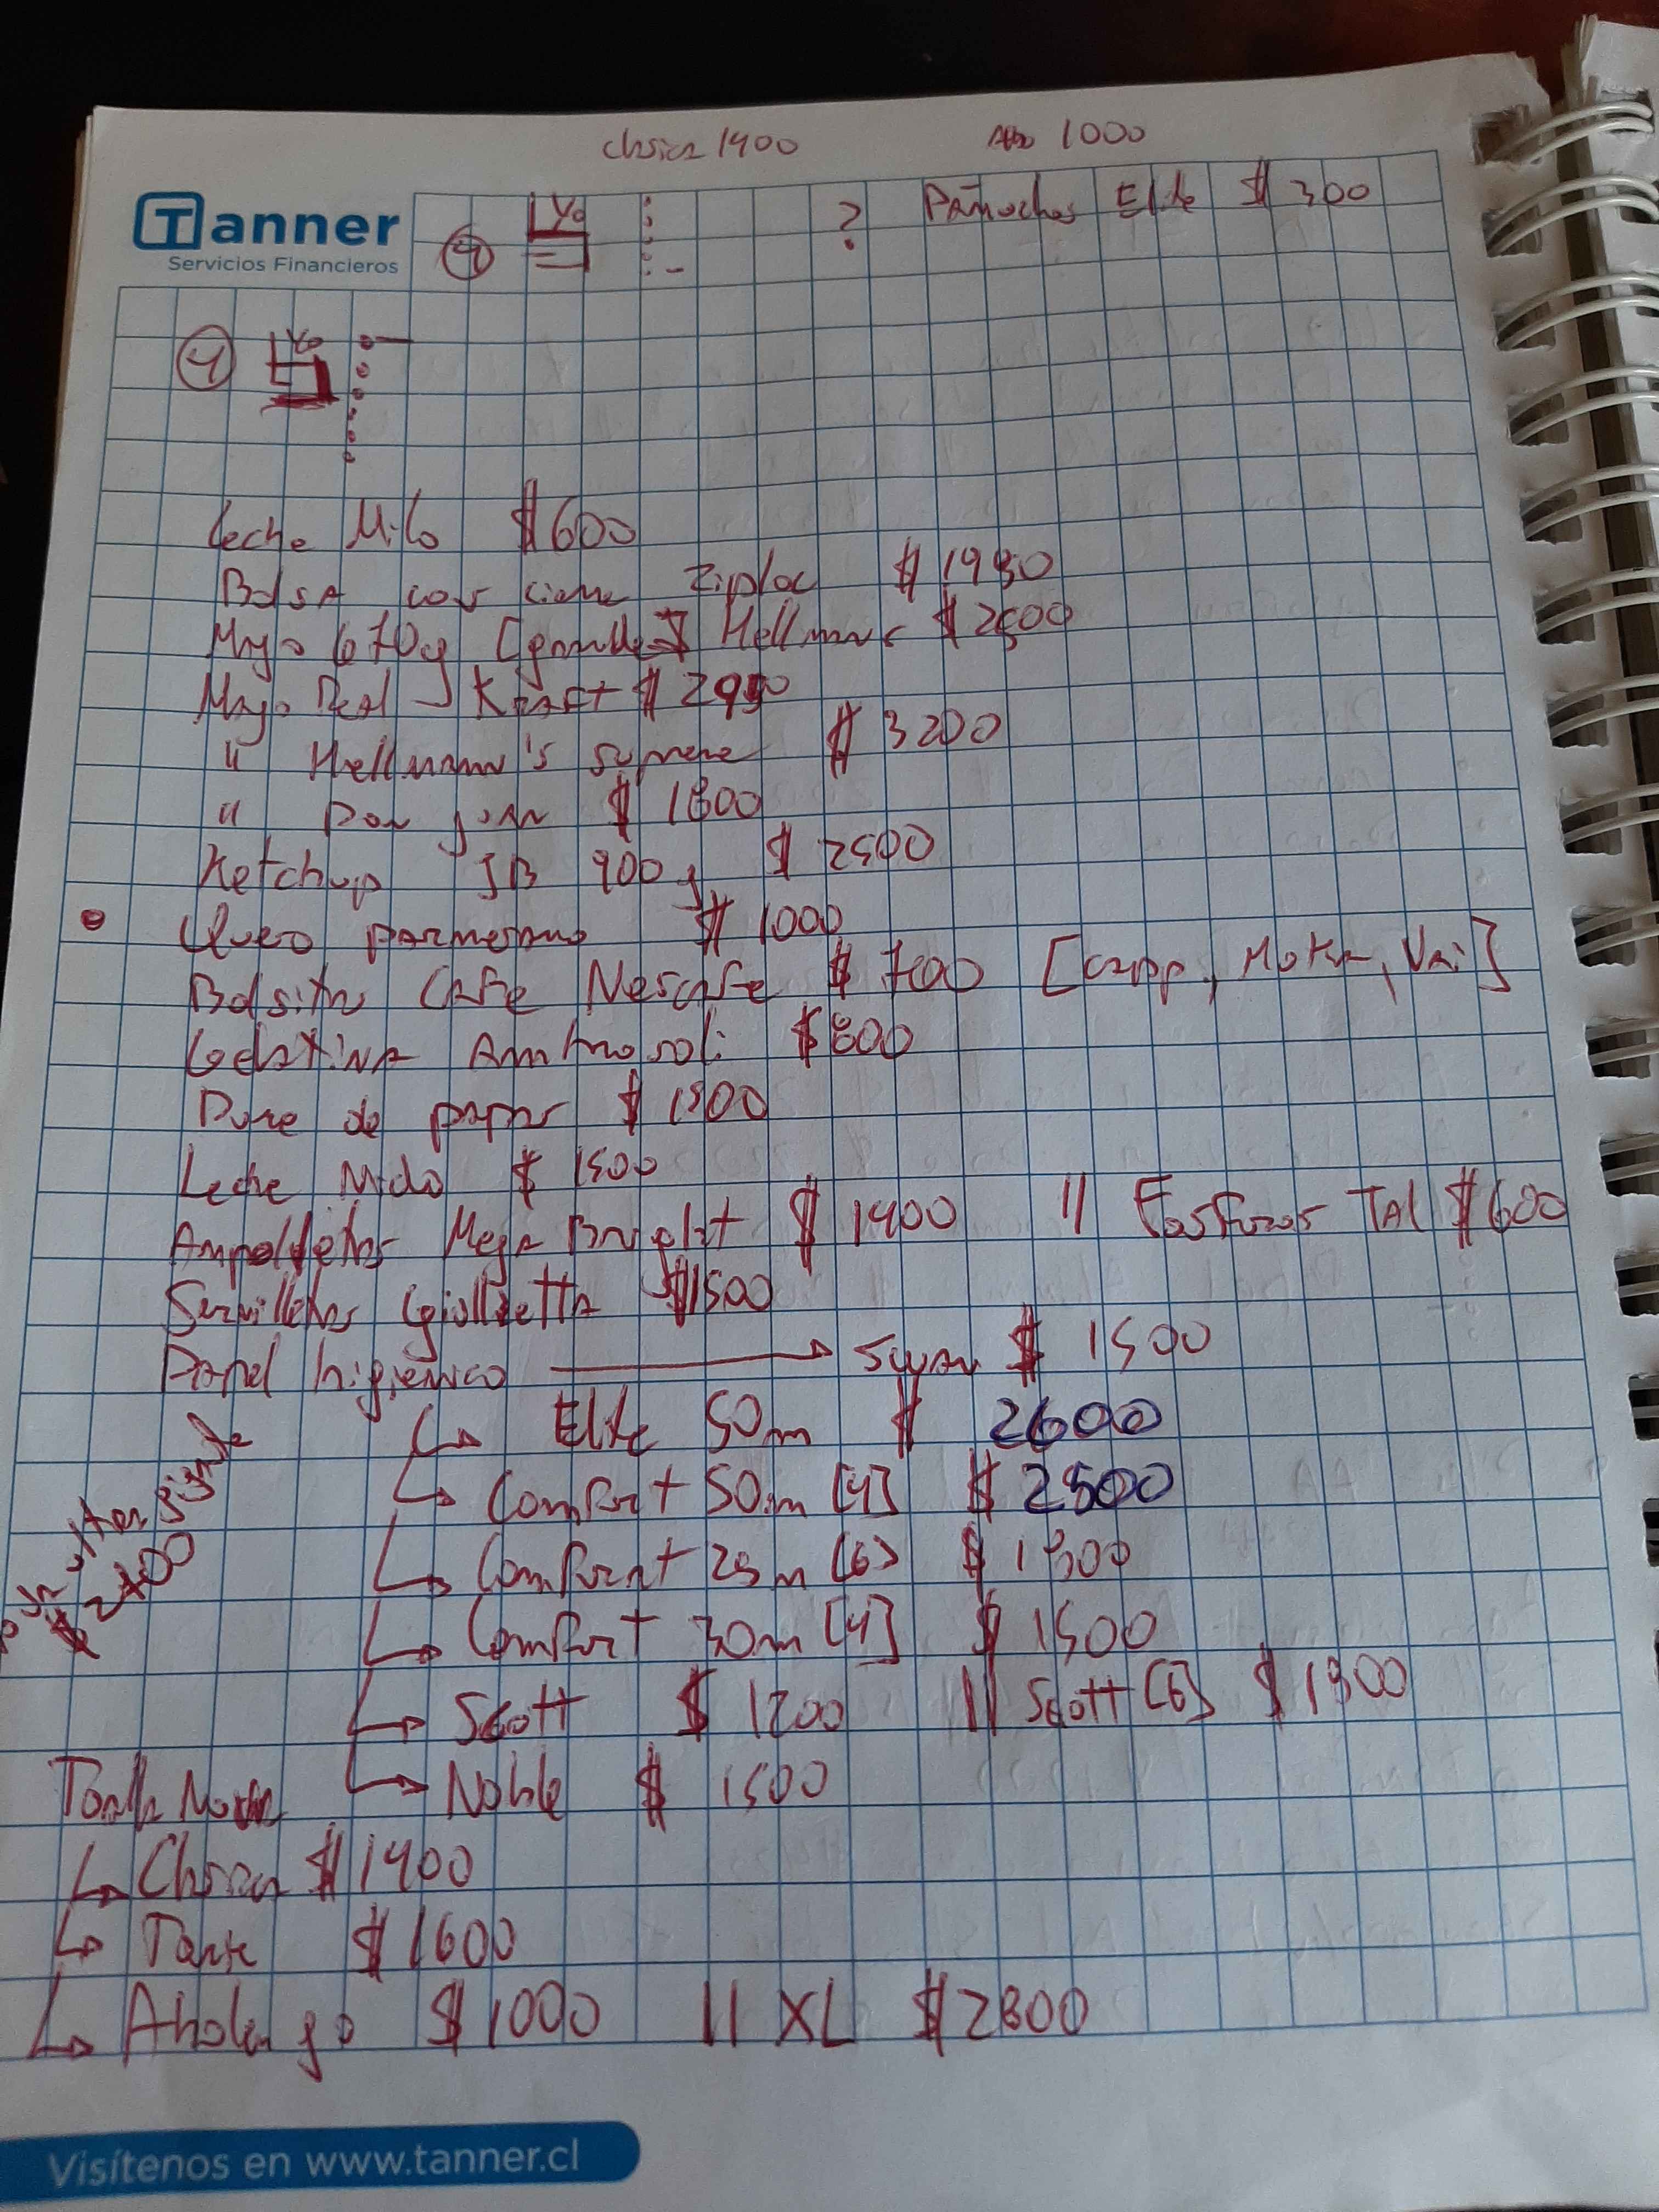 clasica 1400 Abo 1000
Tanner
Servicios Financieros
4 Yo ? Pañuelos Elite $ 300
4 Yo
Leche Milo $600
Bolsa con cierre Ziploc $ 1980
Mayo 670g [grande] Hellmans $2500
Mayo Real Kraft $ 2990
" Hellmann's supreme $ 3200
" Don Juan $ 1800
Ketchup JB 900g $ 2500
Queso parmesano $ 1000
Bolsita Cafe Nescafe $ 700 [Capp, Moka, Vai]
Gelatina Ambrosoli $800
Pure de papas $ 1500
Leche Nido $ 1500
Ampolletas Mega Bright $ 1400 || Fosforos TAL $600
Servilletas Giollietta $1500
Papel higienico → Swan $ 1500
↳ Elite 50m $ 2600
↳ Comfort 50m [4] $ 2500
↳ Comfort 25m [6] $ 1800
↳ Comfort 30m [4] $ 1500
↳ Scott $ 1200 || Scott [6] $ 1800
↳ Noble $ 1500
$ 2700
Toalla Nova
↳ Clasica $ 1400
↳ $ 1600
↳ Abolengo $ 1000 || XL $2800
Visítenos en www.tanner.cl